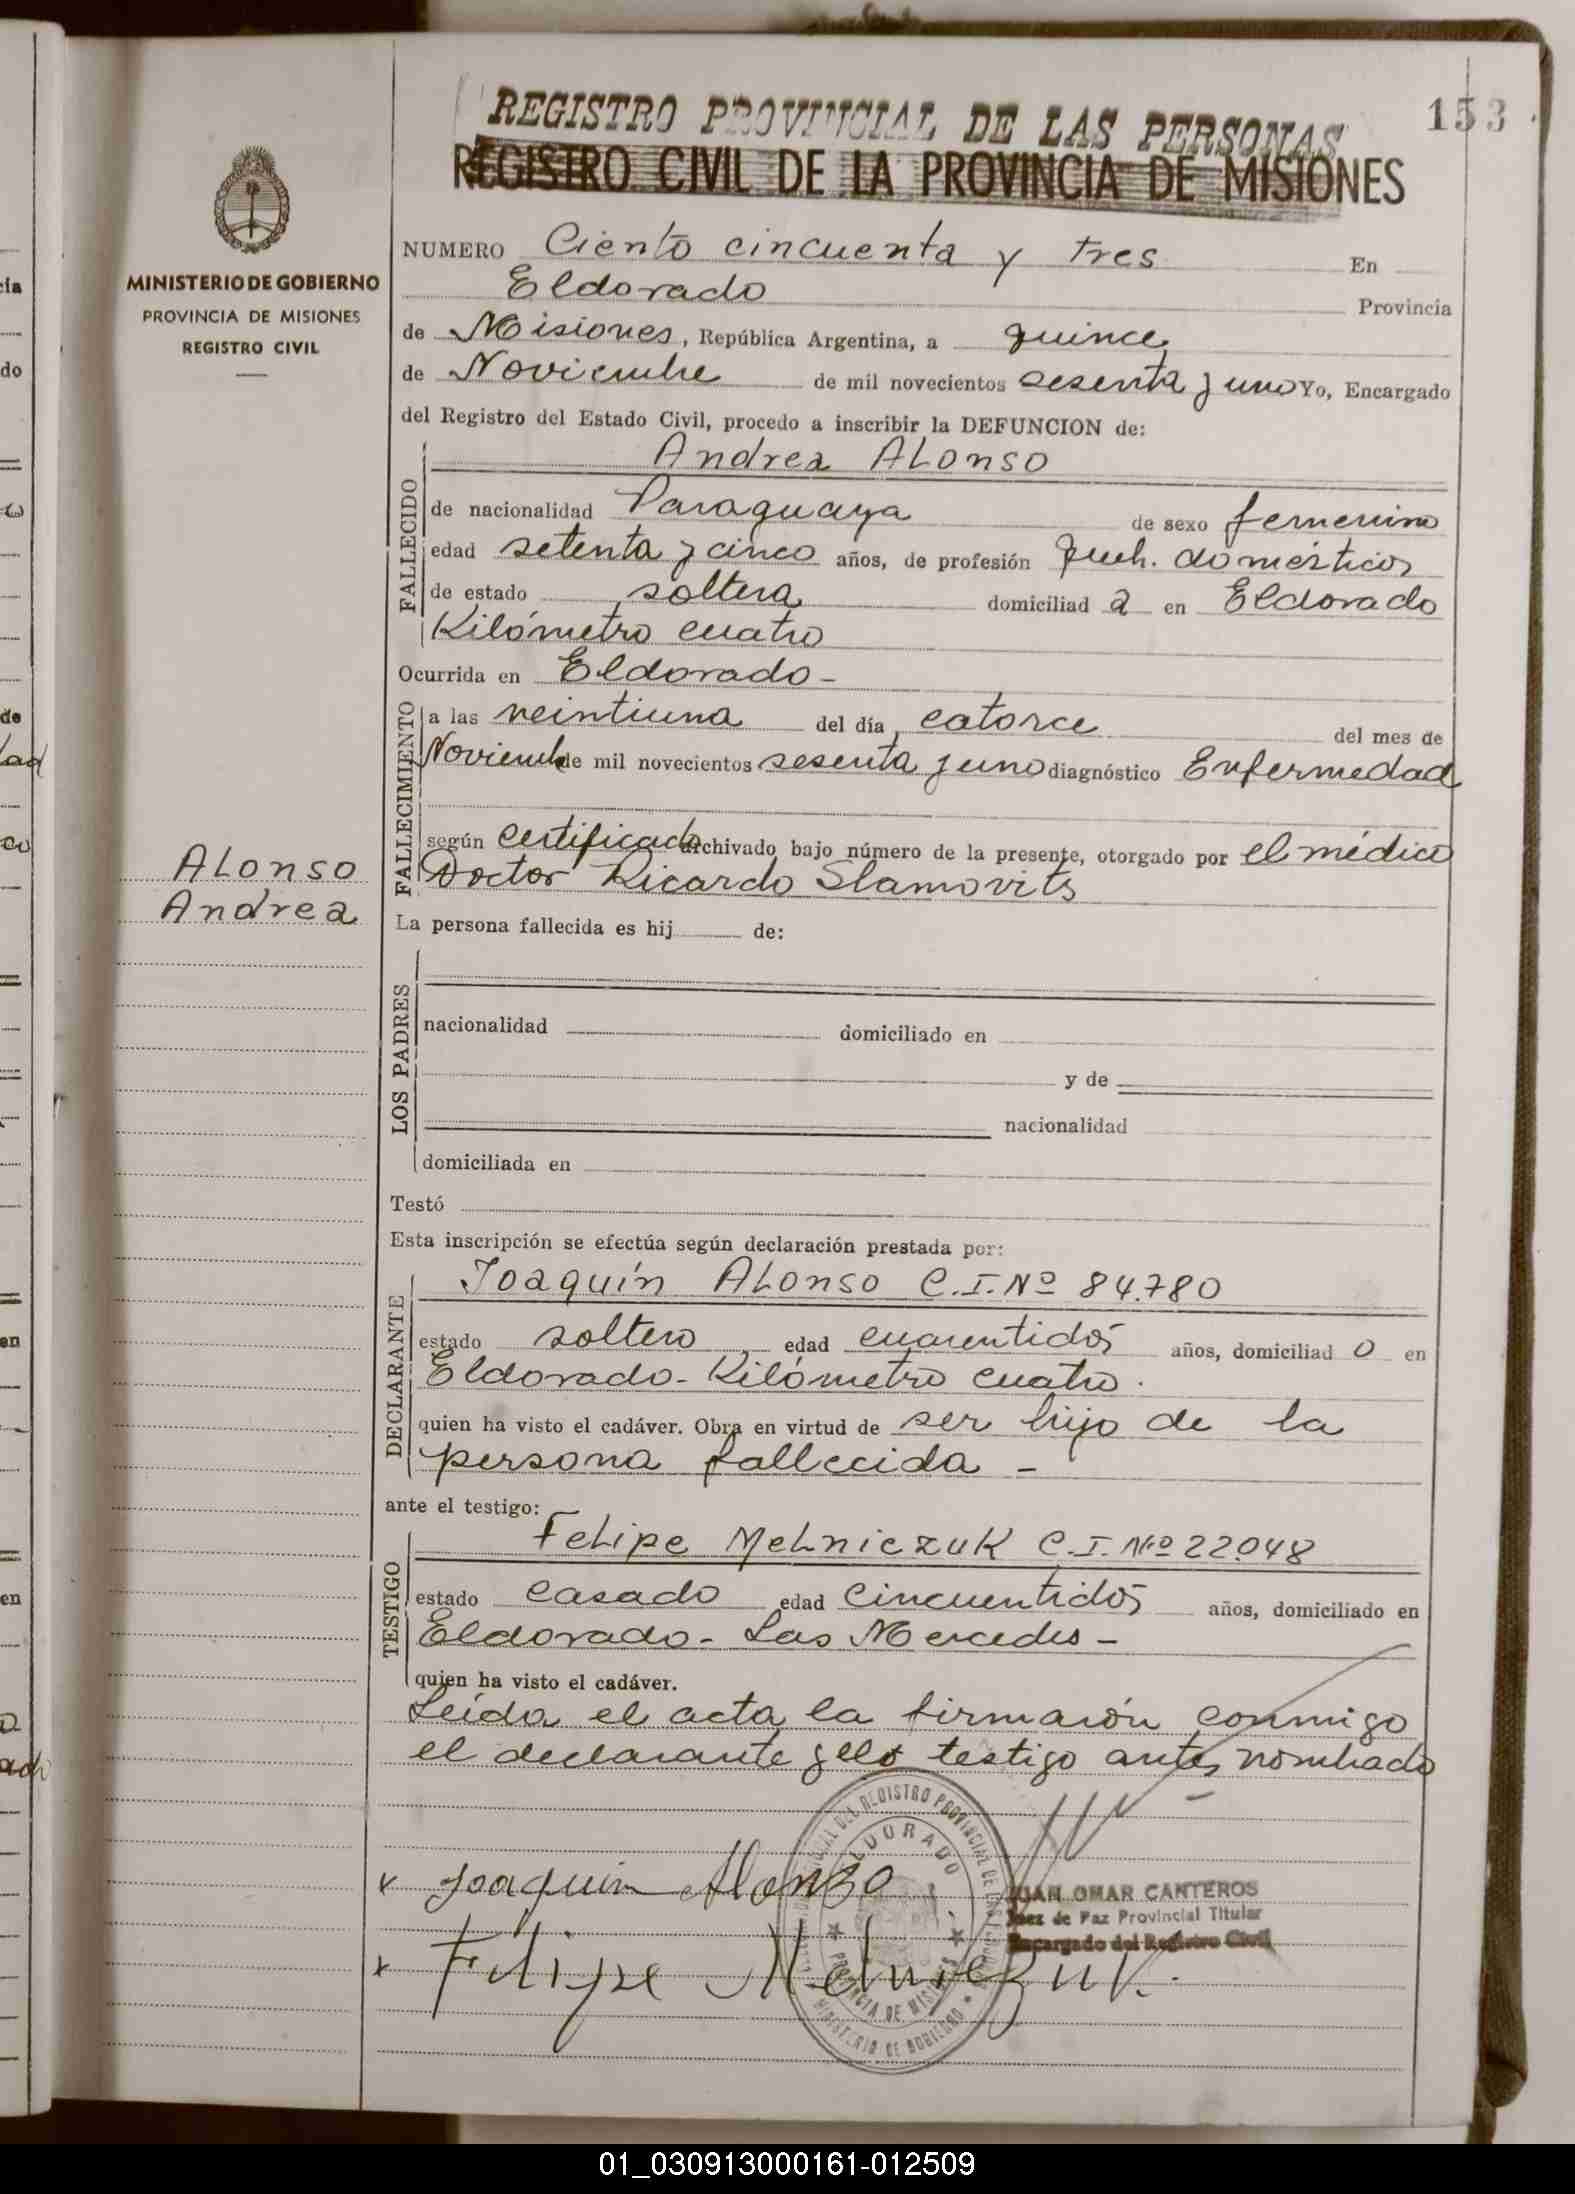 REGISTRO PROVINCIAL DE LAS PERSONAS
153
REGISTRO CIVIL DE LA PROVINCIA DE MISIONES
MINISTERIO DE GOBIERNO
PROVINCIA DE MISIONES
REGISTRO CIVIL
NUMERO Ciento cincuenta y tres En
Eldorado Provincia
de Misiones, República Argentina, a quince
de Noviembre de mil novecientos sesenta y uno Yo, Encargado
del Registro del Estado Civil, procedo a inscribir la DEFUNCION de:
FALLECIDO
Andrea Alonso
de nacionalidad Paraguaya de sexo femenino
edad setenta y cinco años, de profesión queh. domésticos
de estado soltera domiciliad a en Eldorado
Kilómetro cuatro
Ocurrida en Eldorado -
FALLECIMIENTO
a las veintiuna del día catorce del mes de
Noviembre de mil novecientos sesenta y uno diagnóstico Enfermedad
según certificado archivado bajo número de la presente, otorgado por el médico
Doctor Ricardo Slamovits
Alonso
Andrea
La persona fallecida es hij de:
LOS PADRES
nacionalidad domiciliado en
y de
nacionalidad
domiciliada en
Testó
Esta inscripción se efectúa según declaración prestada por:
DECLARANTE
Joaquín Alonso C.I. Nº 84.780
estado soltero edad cuarentidós años, domiciliad o en
Eldorado - Kilómetro cuatro.
quien ha visto el cadáver. Obra en virtud de ser hijo de la
persona fallecida -
ante el testigo:
TESTIGO
Felipe Melniczuk C.I. Nº 22.048
estado casado edad cincuentidós años, domiciliado en
Eldorado - Las Mercedes -
quien ha visto el cadáver.
Leída el acta la firmarón conmigo
el declarante y el testigo antes nombrado
ELDORADO
PROVINCIA DE MISIONES
MINISTERIO DE GOBIERNO
x Joaquin Alonso
JUAN OMAR CANTEROS
Juez de Paz Provincial Titular
Encargado del Registro Civil
x Felipe Melniczuk.
01_030913000161-012509